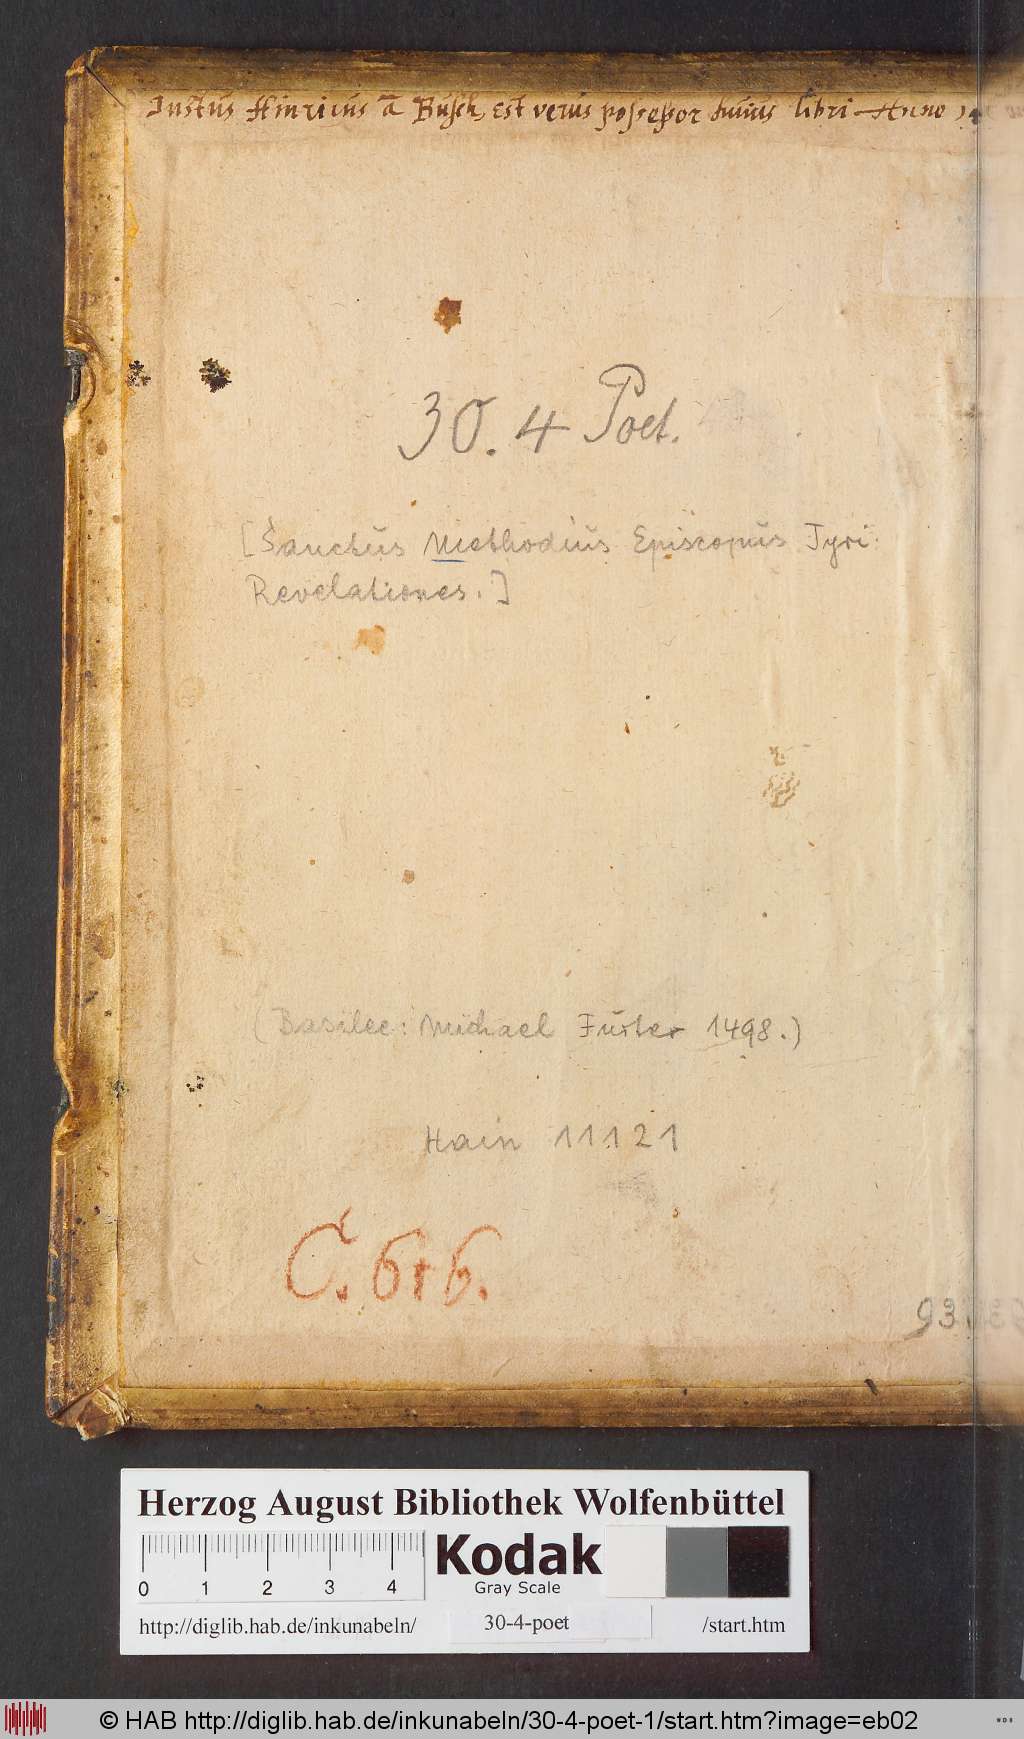 Justus Hinricus a Busch, est verus possessor huius libri Anno
30. 4 Poet.
[Sanctus Methodius Episcopus Tyri:
Revelationes.]
(Basilee: Michael Furter 1498.)
Hain 11121
C. 6t6.
93
Herzog August Bibliothek Wolfenbüttel
0 1 2 3 4
Kodak
Gray Scale
http://diglib.hab.de/inkunabeln/ 30-4-poet /start.htm
© HAB http://diglib.hab.de/inkunabeln/30-4-poet-1/start.htm?image=eb02